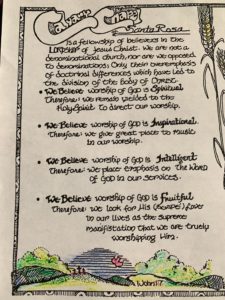 Calvary Chapel
of Santa Rosa
Is a fellowship of believers in the
LORDSHIP of Jesus Christ. We are not a
denominational church, nor are we opposed
to denominations; Only their overemphasis
of doctrinal differences which have led to
the division of the Body of Christ.
• We Believe worship of GOD is Spiritual
Therefore: we remain yielded to the
Holy Spirit to direct our worship.
• We Believe worship of GOD is Inspirational
Therefore: we give great place to music
in our worship.
• We Believe worship of GOD is Intelligent
Therefore: we place emphasis on the WORD
of GOD in our services.
• We Believe worship of GOD is Fruitful
Therefore: we look for His (agape) Love
in our lives as the supreme
manifistation that we are truly
worshipping Him.